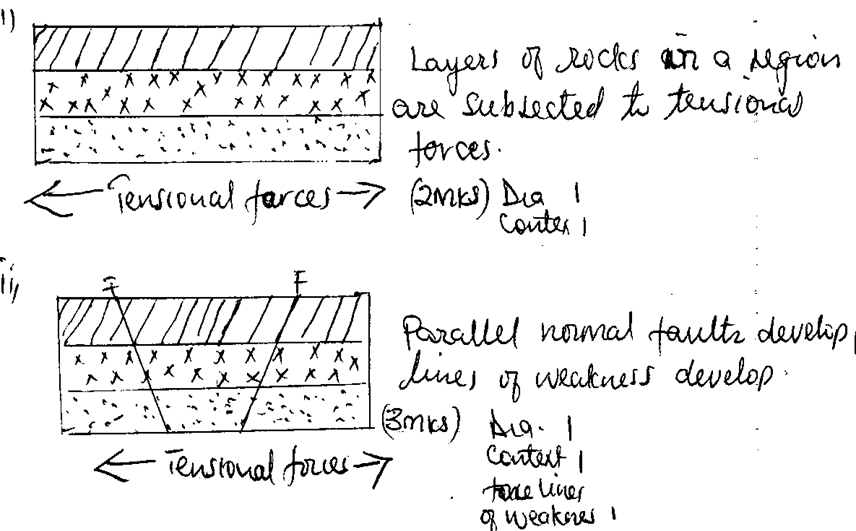 i)
Layers of rocks in a region
are subjected to tensional
forces.
Tensional forces
(2mks) Dia 1
Contex 1
ii,
F F
Parallel normal faults develop,
lines of weakness develop.
(3mks) Dia. 1
Context 1
lines
of weaknes 1
Tensional forces